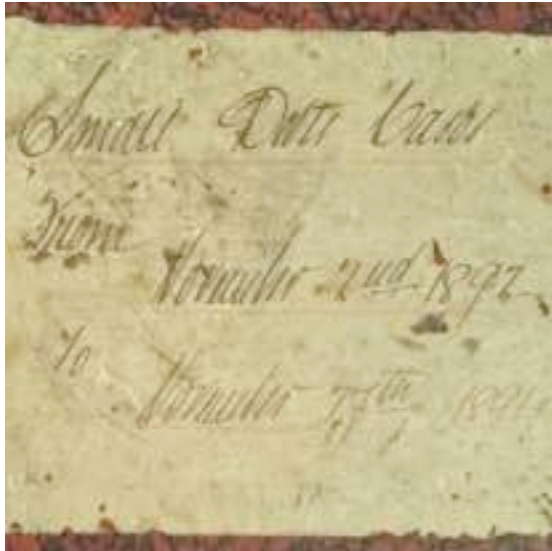 Small Debt Cases
From
November 2nd 1892
To
November